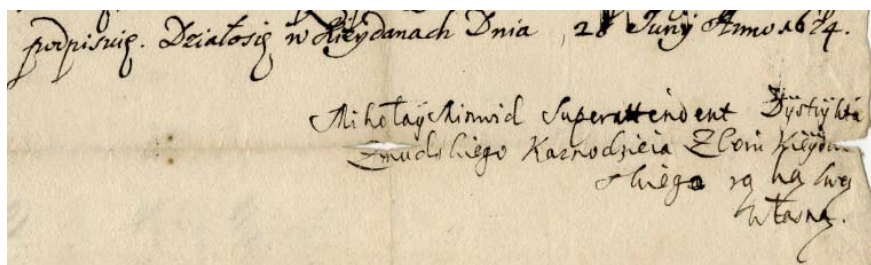 podpisuię. Działosię w Kieydanach Dnia 28 Juny Anno 1674.
Mikołay Minwid Superattendent Dystryktu
Zmudskiego Kaznodzieia Zboru Kieydan
skiego rą ką swą
własną.